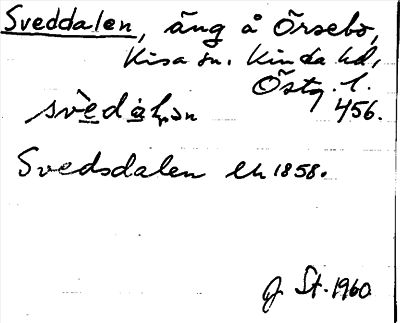 Sveddalen, äng å Örsebo,
Kisa sn. Kinda hd,
Östg. l.
456.
Svedsdalen lh 1858.
J. St. 1960